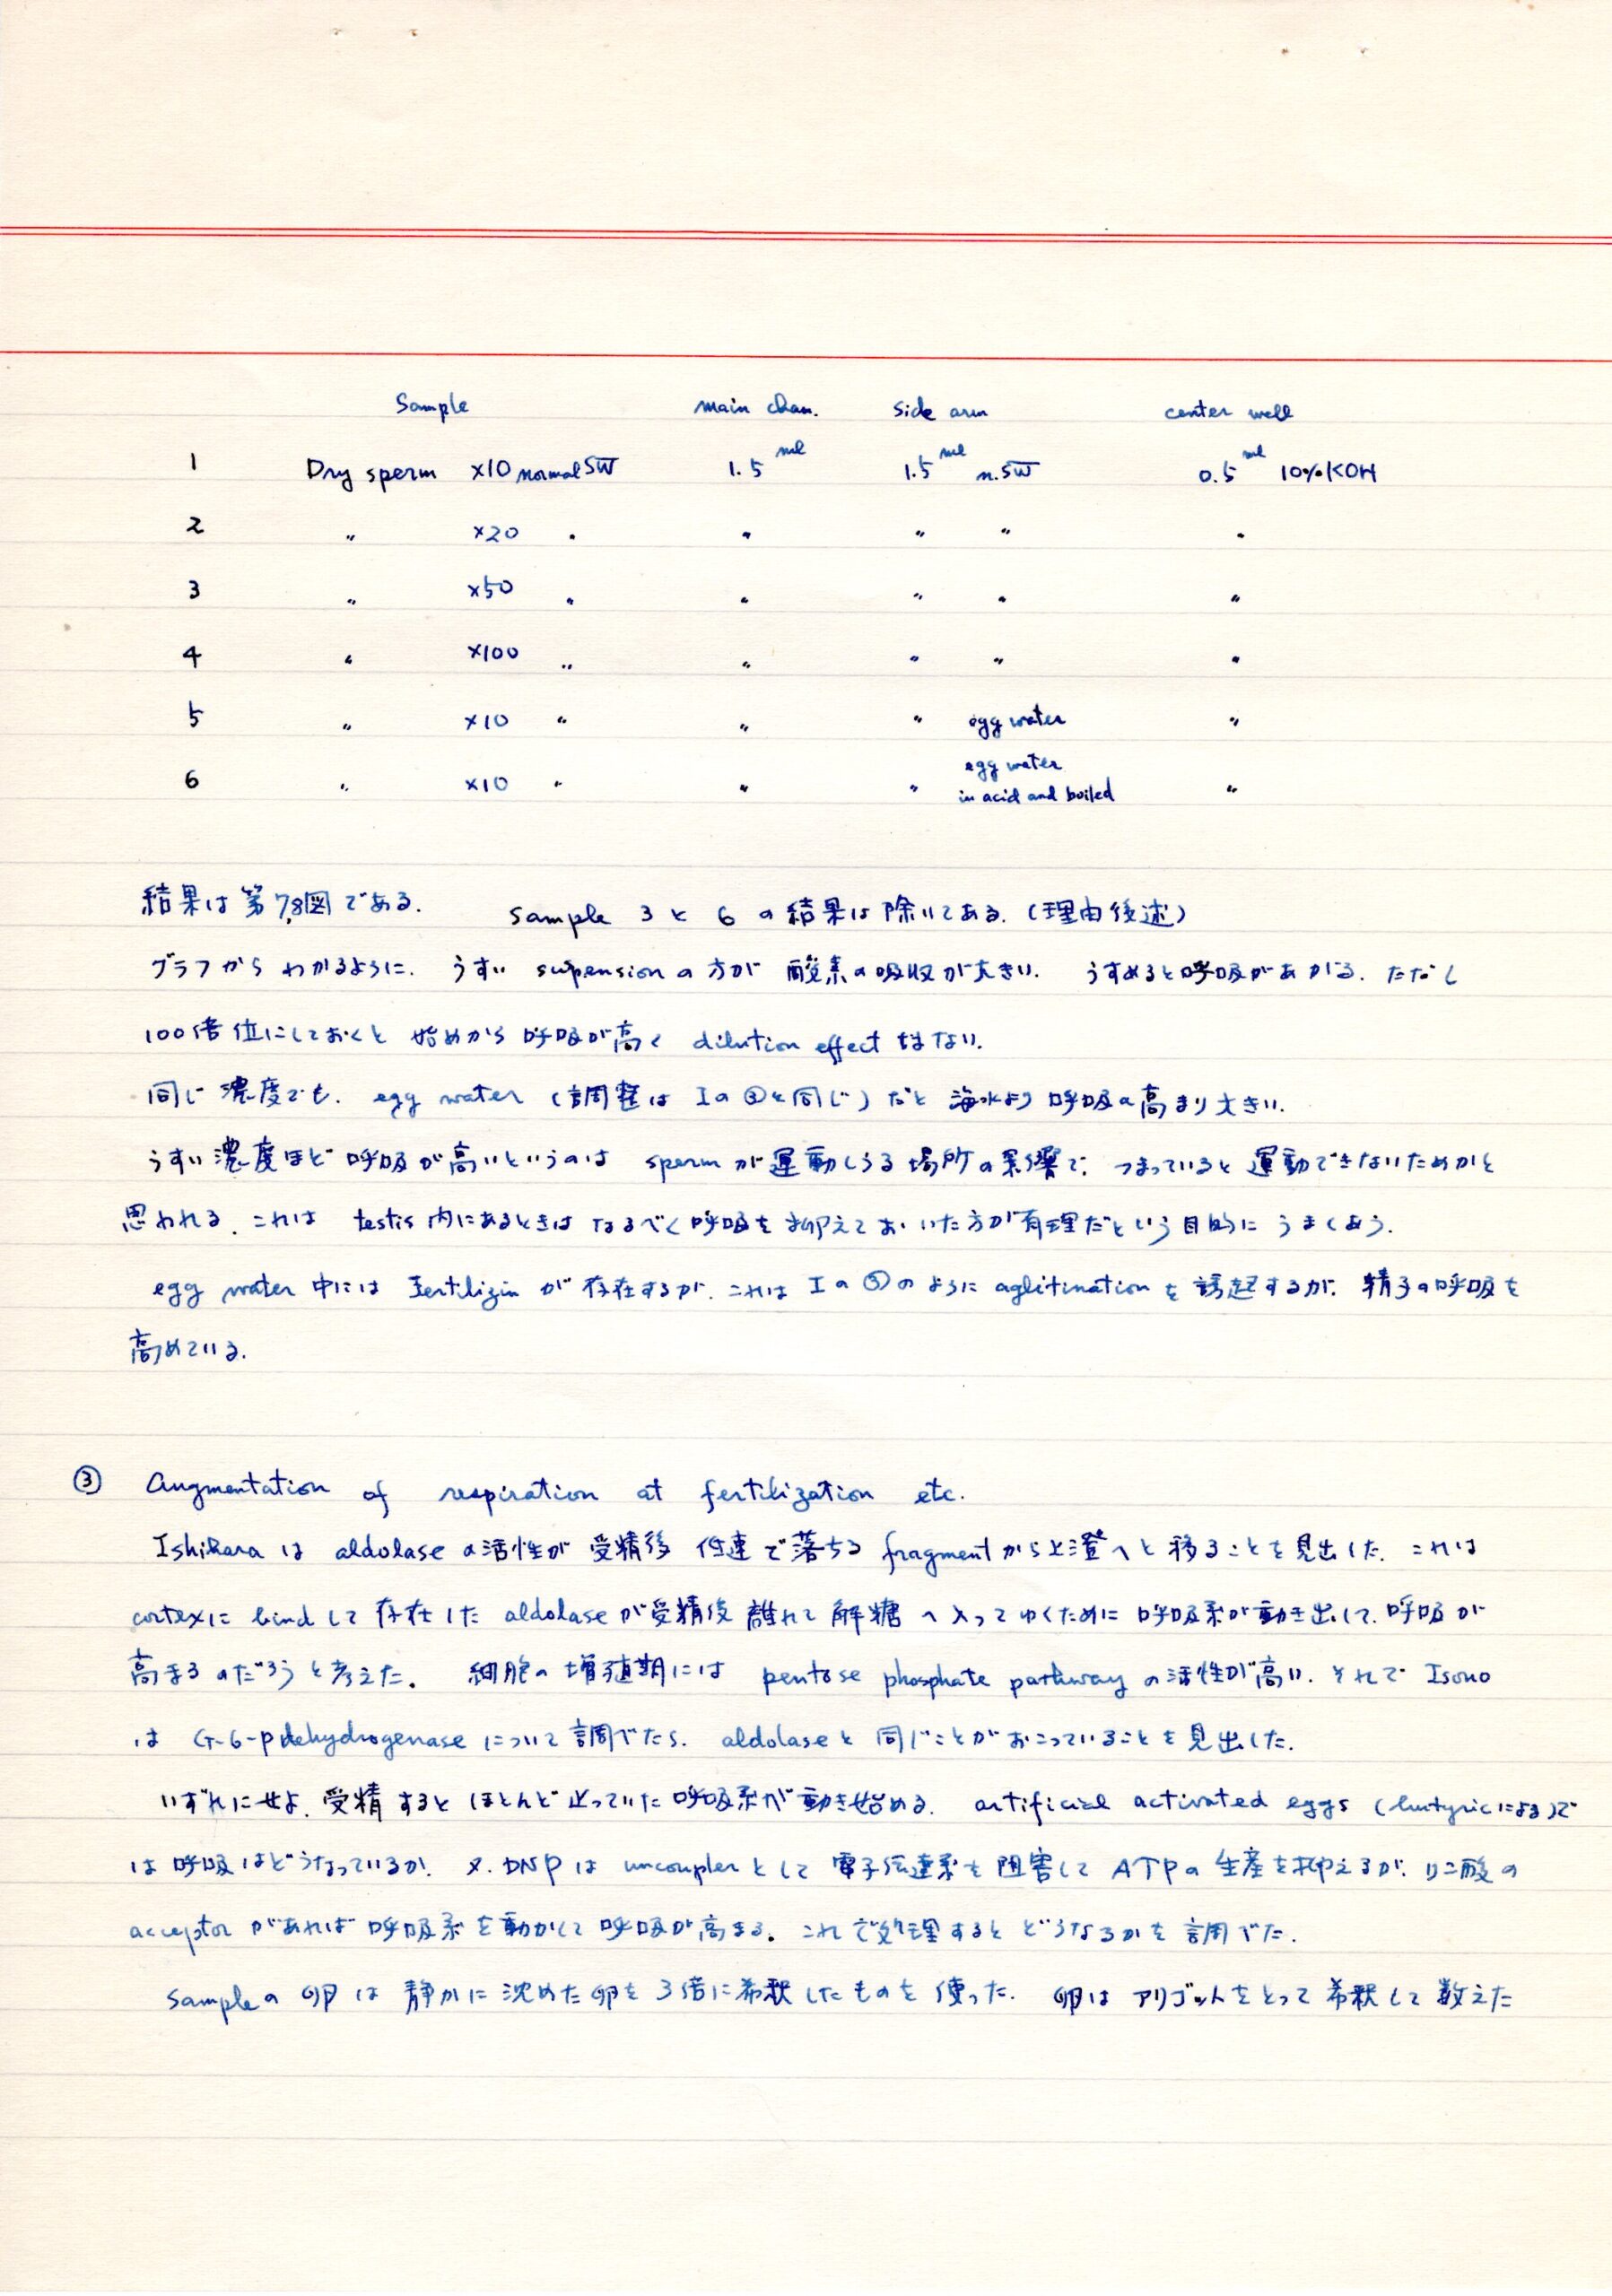 Sample main cham. side arm center well
1 Dry sperm ×10 normal SW 1.5 ml 1.5 ml n.SW 0.5 ml 10% KOH
2 〃 ×20 〃 〃 〃 〃 〃
3 〃 ×50 〃 〃 〃 〃 〃
4 〃 ×100 〃 〃 〃 〃 〃
5 〃 ×10 〃 〃 〃 egg water 〃
6 〃 ×10 〃 〃 〃 egg water in acid and boiled 〃
結果は第7,8図である. sample 3と6の結果は除いてある.(理由後述)
グラフからわかるように. うすい suspensionの方が酸素の吸収が大きい. うすめると呼吸があがる. ただし
100倍位にしておくと始めから呼吸が高く dilution effect はない.
同じ濃度でも. egg water (調整はIの③と同じ) だと海水より呼吸の高まり大きい.
うすい濃度ほど呼吸が高いというのは spermが運動しうる場所の影響で. つまっていると運動できないためかと
思われる. これは testis内にあるときはなるべく呼吸を抑えておいた方が有理だという目的にうまくあう.
egg water 中には fertilizin が存在するが. これはIの⑤のように aglutination を誘起するが. 精子の呼吸を
高めている.
③ Augmentation of respiration at fertilization etc.
Ishihara は aldolase の活性が受精後低速で落ちる fragmentから上澄へと移ることを見出した. これは
cortexに bind して存在した aldolaseが受精後離れて解糖へ入ってゆくために呼吸系が動き出して. 呼吸が
高まるのだろうと考えた. 細胞の増殖期には pentose phosphate pathway の活性が高い. それで Isono
は G-6-P dehydrogenase について調べたら. aldolaseと同じことがおこっていることを見出した.
いずれにせよ. 受精するとほとんど止っていた呼吸系が動き始める. artificial activated eggs (butyricによる)で
は呼吸はどうなっているか. 又. DNPは uncouplerとして電子伝達系を阻害して ATPの生産を抑えるが. リン酸の
acceptor があれば呼吸系を動かして呼吸が高まる. これで処理するとどうなるかを調べた.
Sampleの卵は静かに沈めた卵を3倍に希釈したものを使った. 卵はアリゴットをとって希釈して数えた